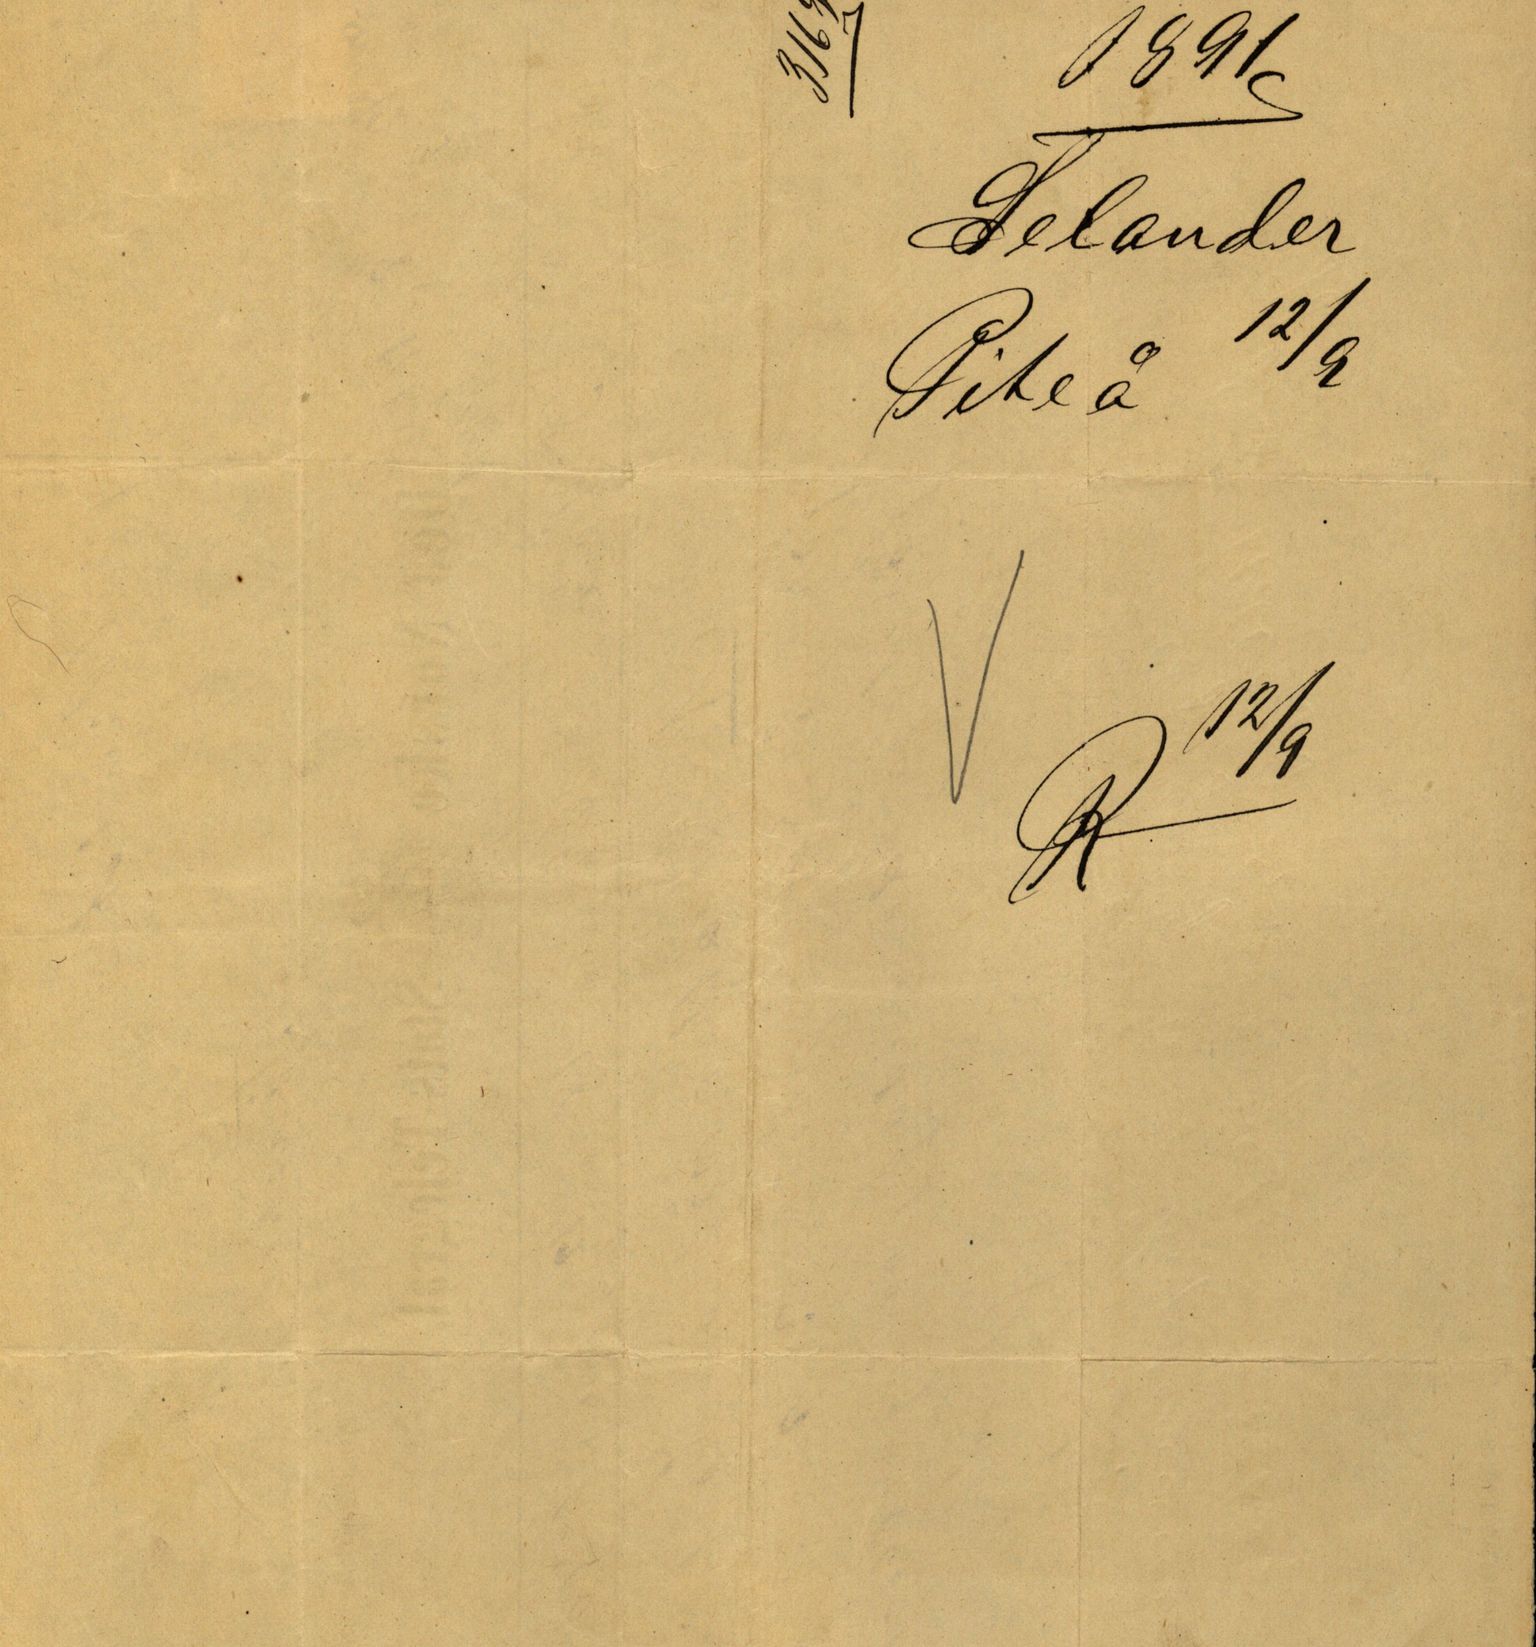 1891
Selander
Piteå 12/9
V
R 12/9